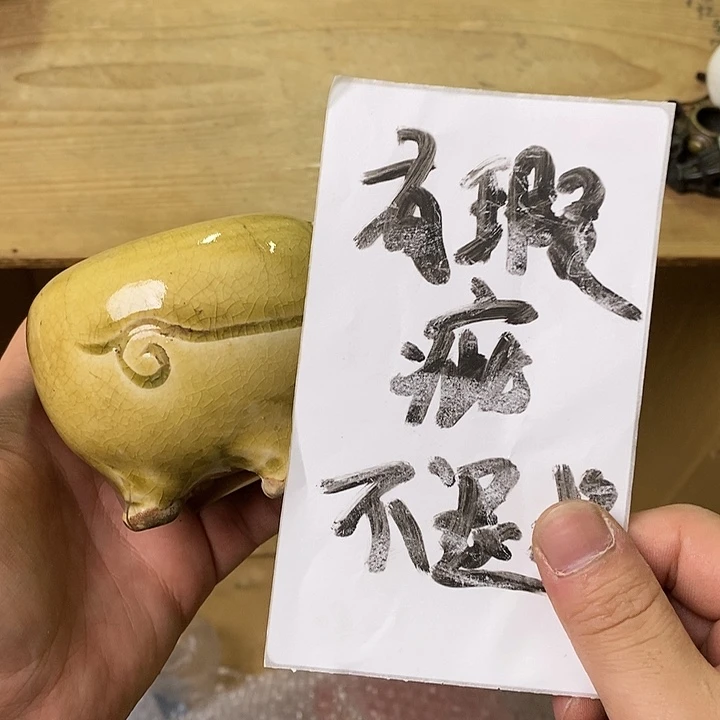 有瑕
疵
不退